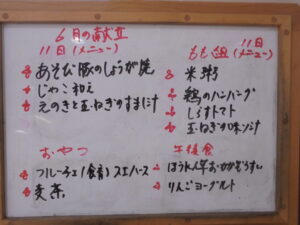 6月の献立
11日(メニュー)
あそび豚のしょうが焼
じゃこ和え
えのきと玉ねぎのすまし汁
おやつ
フルーチェ
麦茶
もも組 11日(メニュー)
米粥
鶏のハンバーグ
しらすトマト
玉ねぎの味噌汁
午後食
ほうれん草おかかぞうすい
りんごヨーグルト